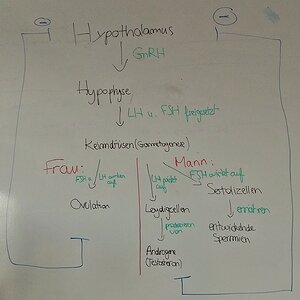 Hypothalamus
GnRH
Hypophyse
LH u. FSH freigesetzt
Keimdrüsen (Gametogenese)
Frau:
Mann:
FSH u. LH wirken auf
LH wirkt auf
FSH wirkt auf
Ovulation
Leydigzellen
Sertolizellen
produzieren von
ernähren
Androgene (Testosteron)
entwickelnde Spermien